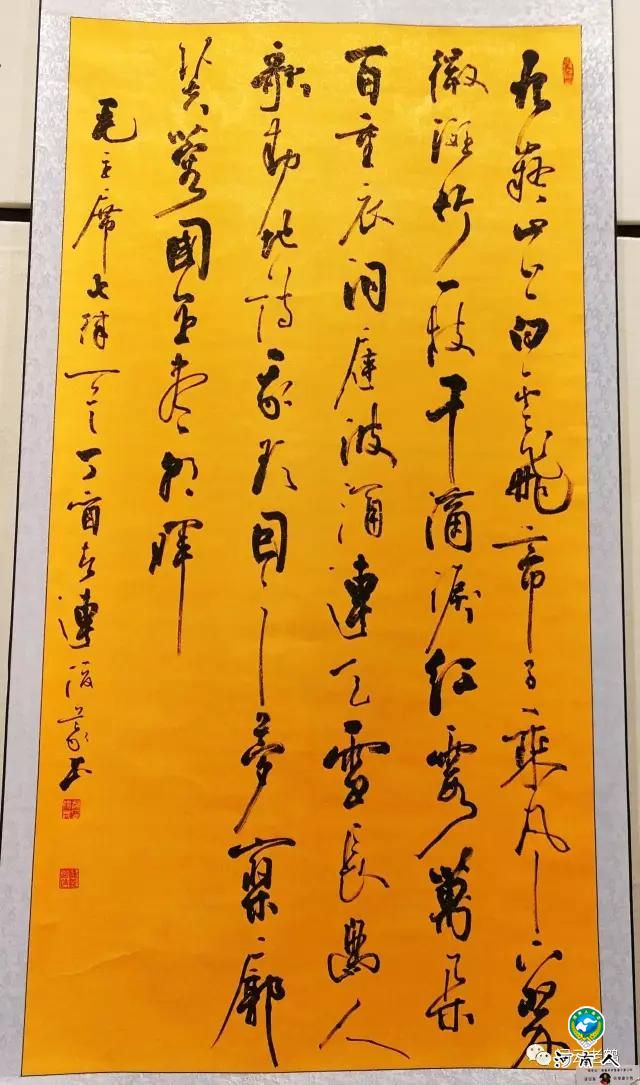 九嶷山上白雲飛帝子乘風下翠
微斑竹一枝千滴淚紅霞萬朵
百重衣洞庭波涌連天雪長島人
歌動地詩我欲因之夢寥廓
芙蓉國里盡朝暉
毛主席七律一首丁酉春連书
河南人